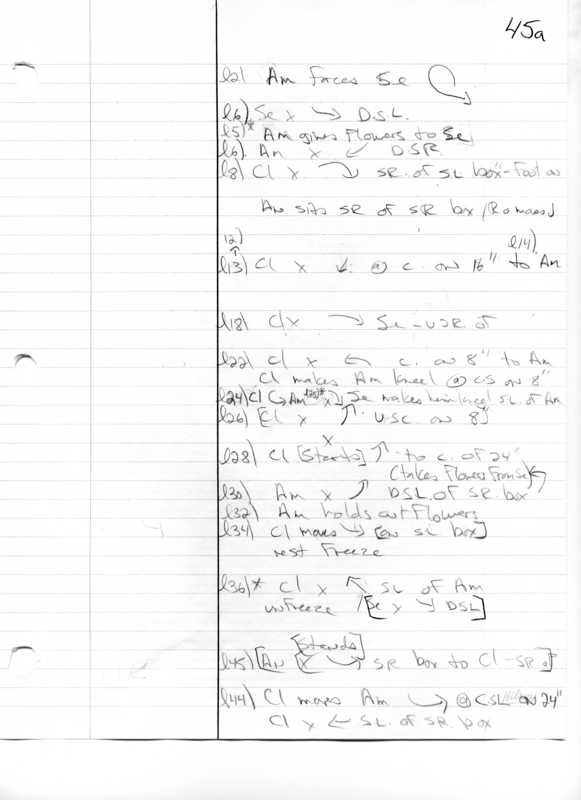 45a
l2) Am Faces Se
l6) Se x → DSL.
l5)* Am gives Flowers to Se
l6) Am x ↙ DSR.
l8) Cl x SR. of SL box - Foot on
Am sits SR of SR box
12) l14)
l13) Cl x ↓ @ c. on 16" to Am
l18) Cl x → Se - USR of
l22) Cl x ← c. on 8" to Am
Cl makes Am kneel @ CS on 8"
l24) Cl Am l25)* x Se makes him kneel SL of Am
l26) [Cl x ↑ USC. on 8]
x
l28) Cl [Starts] ↑ to c. of 24"
(takes Flowers From Se)
l30) Am x DSL. of SR. box
l32) Am holds out Flowers
l34) Cl moves → [on SL box]
rest Freeze
l36)* Cl x ↖ SL of Am
unfreeze /[Se x DSL]
[Stands]
l45) [Am x → SR box to Cl - SR of]
l44) Cl moves Am → @ CSL on 24"
Cl x ← SL. of SR. box